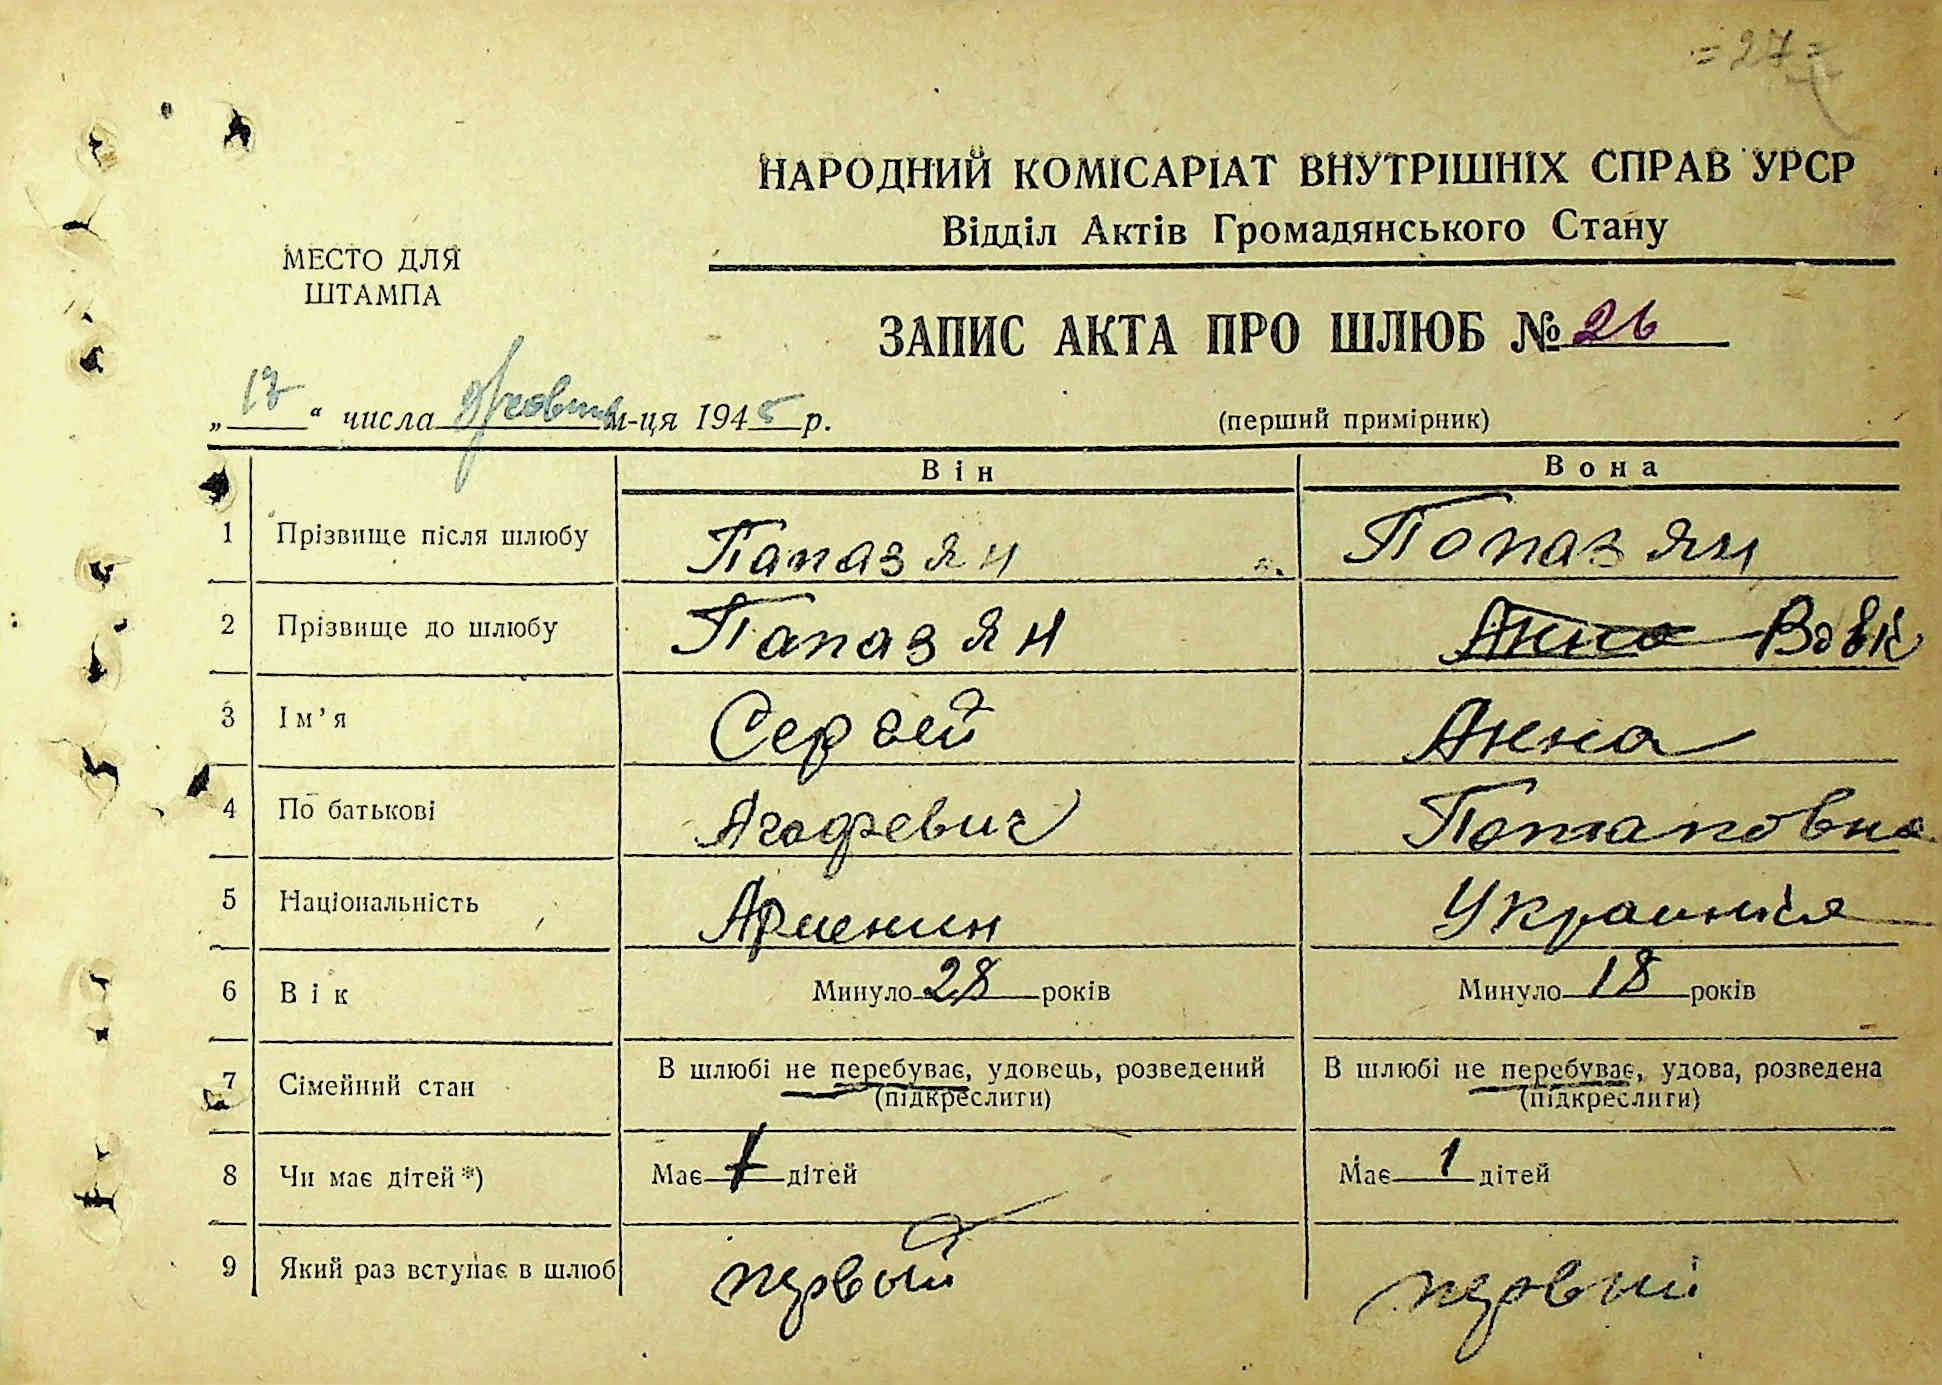 = 27 =
НАРОДНИЙ КОМІСАРІАТ ВНУТРІШНІХ СПРАВ УРСР
Відділ Актів Громадянського Стану
МЕСТО ДЛЯ
ШТАМПА
ЗАПИС АКТА ПРО ШЛЮБ № 26
„ “ числа м-ця 1945 р.
(перший примірник)
Він Вона
1 Прізвище після шлюбу Папазян Попазян
2 Прізвище до шлюбу Папазян Анна Вовк
3 Ім’я Сергей Анна
4 По батькові Потаповна
5 Національність Арменин
6 Вік Минуло 28 років Минуло 18 років
7 Сімейний стан В шлюбі не перебуває, удовець, розведений В шлюбі не перебуває, удова, розведена
(підкреслити) (підкреслити)
8 Чи має дітей*) Має 1 дітей Має 1 дітей
9 Який раз вступає в шлюб первый первий